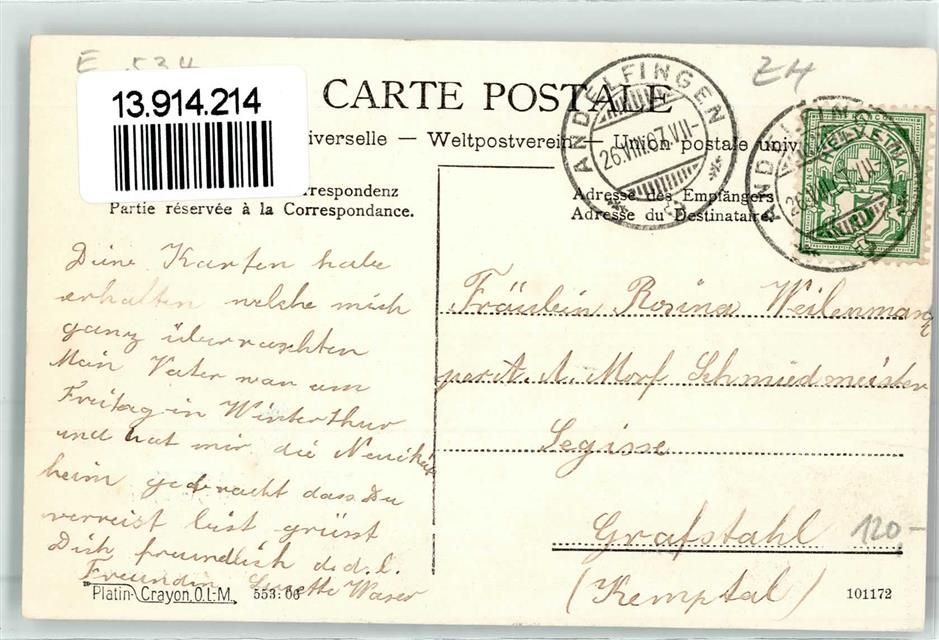 E 534
ZH
13.914.214
CARTE POSTALE
iverselle — Weltpostverein — Union postale univ
respondenz
Partie réservée à la Correspondance.
Adresse des Empfängers
Adresse du Destinataire
ANDELFINGEN
26.VIII.07.VII-
ANDELFINGEN
HELVETIA
Deine Karten habe
erhalten welche mich
ganz überraschten
Mein Vater war am
Freitag in Winterthur
und hat mir die Neuikeit
heim gebracht dass Du
verreist bist grüsst
Dich freundlich d. d. l.
Freundin Lisette Waser
Fräulein Rosina Weilenmann
per A. A. Morf Schmiedmeister
Grafstahl
(Kemptal)
120-
Platin-Crayon. O.L-M.
553:06
101172